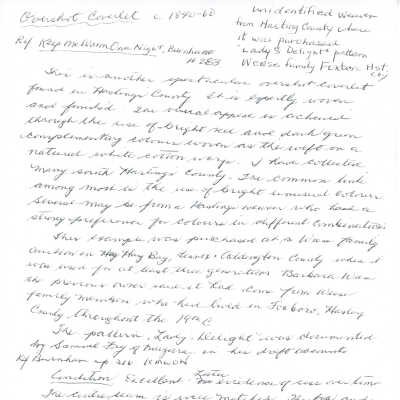 Overshot Coverlet c. 1840-60
Unidentified Weaver
from Hasting County where
it was purchased
"Lady's Delight" pattern
Weese Family Foxton Hst.
Cty
Ref Keep Me Warm One Night, Burnham
# 283
This is another spectacular overshot coverlet
found in Hastings County. It is expertly woven
and finished. Its visual appeal is achieved
through the use of bright red and dark green
complementary colours woven as the weft on a
natural white cotton warp. I have collected
many south Hastings County. The common link
among most is the use of bright unusual colours
Several may be from a Hastings weaver who had a
strong preference for colours in different combinations.
This example was purchased at a family
auction on Hay Bay, County where it
was used for at least three generations. Barbara
the previous owner said it had come from Weese
family members who had lived in Foxboro, Hasting
County throughout the 19th C
The pattern, "Lady's Delight" was documented
by Samuel Fry of Niagara in his draft
Ref Burnham up 322 KMWON
Condition: Excellent - no evidence of use over time
The centre seam is well matched. The